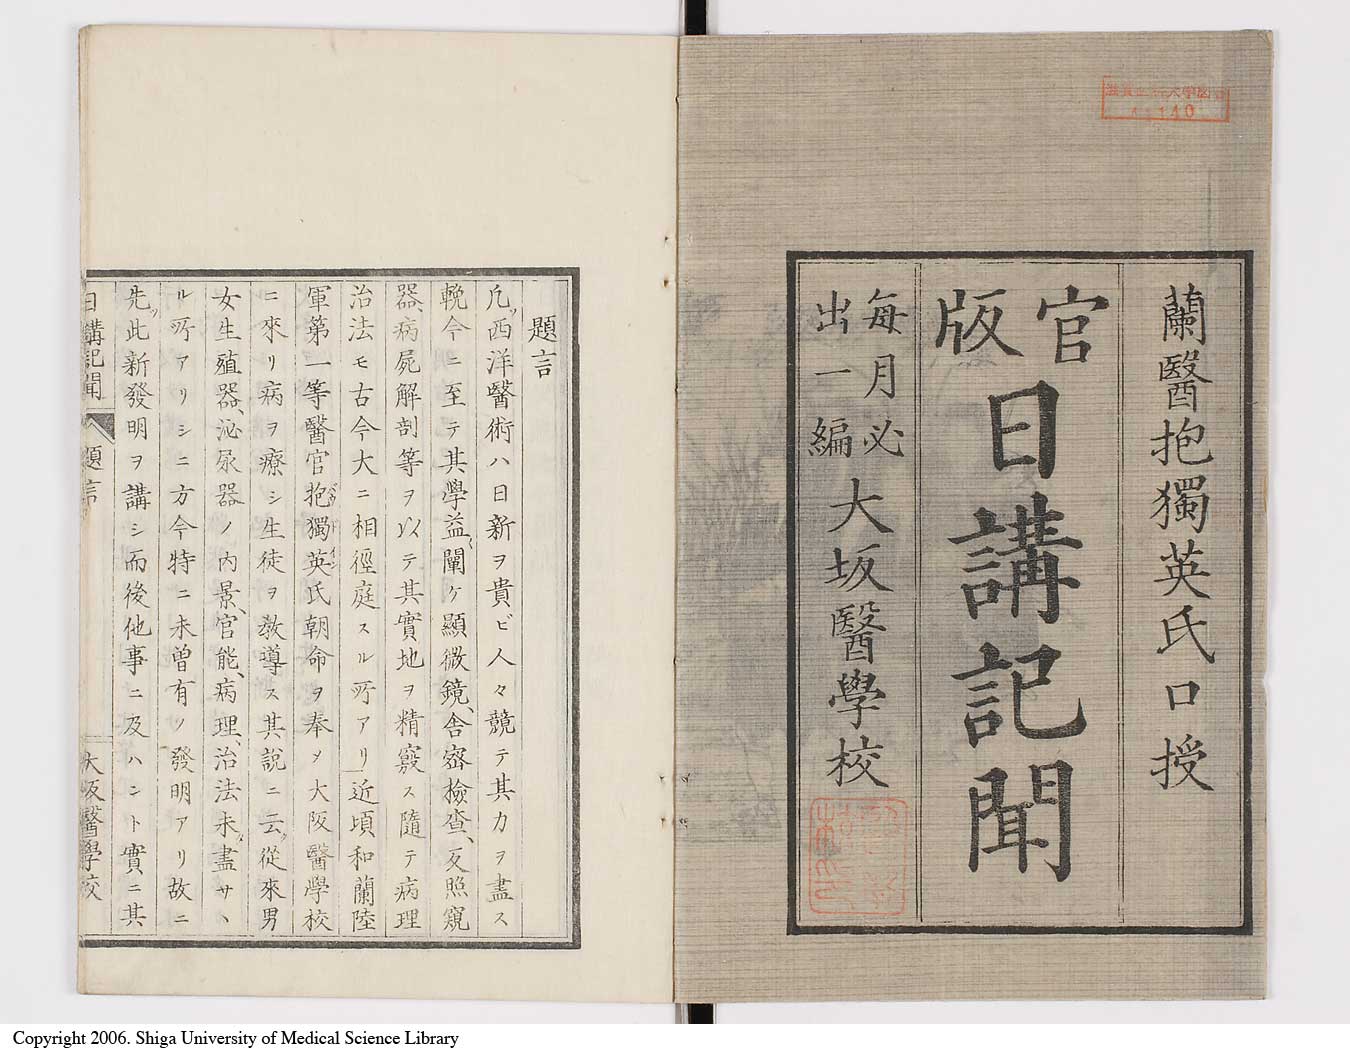 蘭醫抱獨英氏口授
官版
日講記聞
每月必
出一編
大坂醫學校
題言
凡西洋醫術ハ日新ヲ貴ビ人々競テ其力ヲ盡ス
輓今ニ至テ其學益闡ケ顯微鏡、舎密檢查、反照窺
器、病屍解剖等ヲ以テ其實地ヲ精竅ス隨テ病理
治法モ古今大ニ相徑庭スル所アリ近頃和蘭陸
軍第一等醫官抱獨英氏朝命ヲ奉メ大阪醫學校
ニ來リ病ヲ療シ生徒ヲ敎導ス其說ニ云從來男
女生殖器、泌尿器ノ內景、官能、病理、治法未盡サヽ
ル所アリシニ方今特ニ未曾有ノ發明アリ故ニ
先此新發明ヲ講シ而後他事ニ及ハント實ニ其
日講記聞
題言
大坂醫學校
Copyright 2006. Shiga University of Medical Science Library